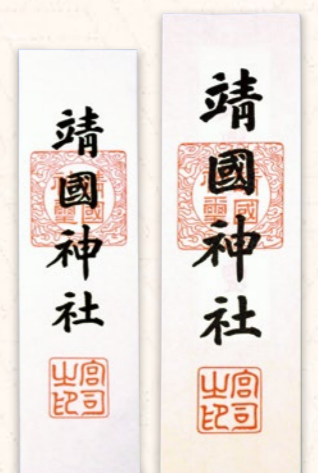 靖國神社
宮司之印
靖國神社
宮司之印